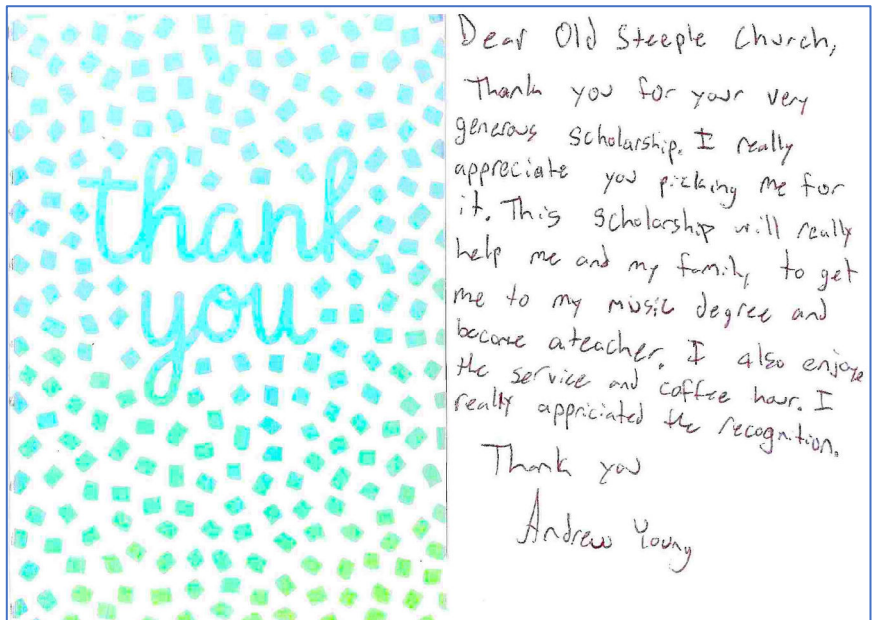 thank
you
Dear Old Steeple Church,
Thank you for your very
generous scholarship. I really
appreciate you picking me for
it. This scholarship will really
help me and my family to get
me to my music degree and
become a teacher. I also enjoye
the service and coffee hour. I
really appriciated the recognition.
Thank you
Andrew Young